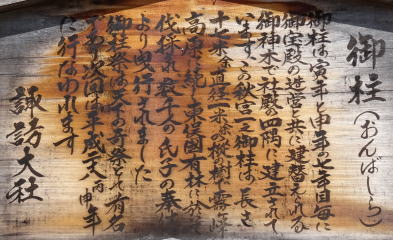 御柱(おんばしら)
御柱は寅年と申年の七年目毎に
御宝殿の造営と共に建替えられる
御神木で社殿の四隅に建立されて
います この秋宮一之御柱は長さ
十七米余 直径一米余の樅の樹で
高原に続く東俣国有林に於て
伐採され数千人の氏子の奉仕に
より曳行されました
御柱祭は天下の奇祭として有名
であり次回は平成二十八丙申年
に行なわれます
諏訪大社